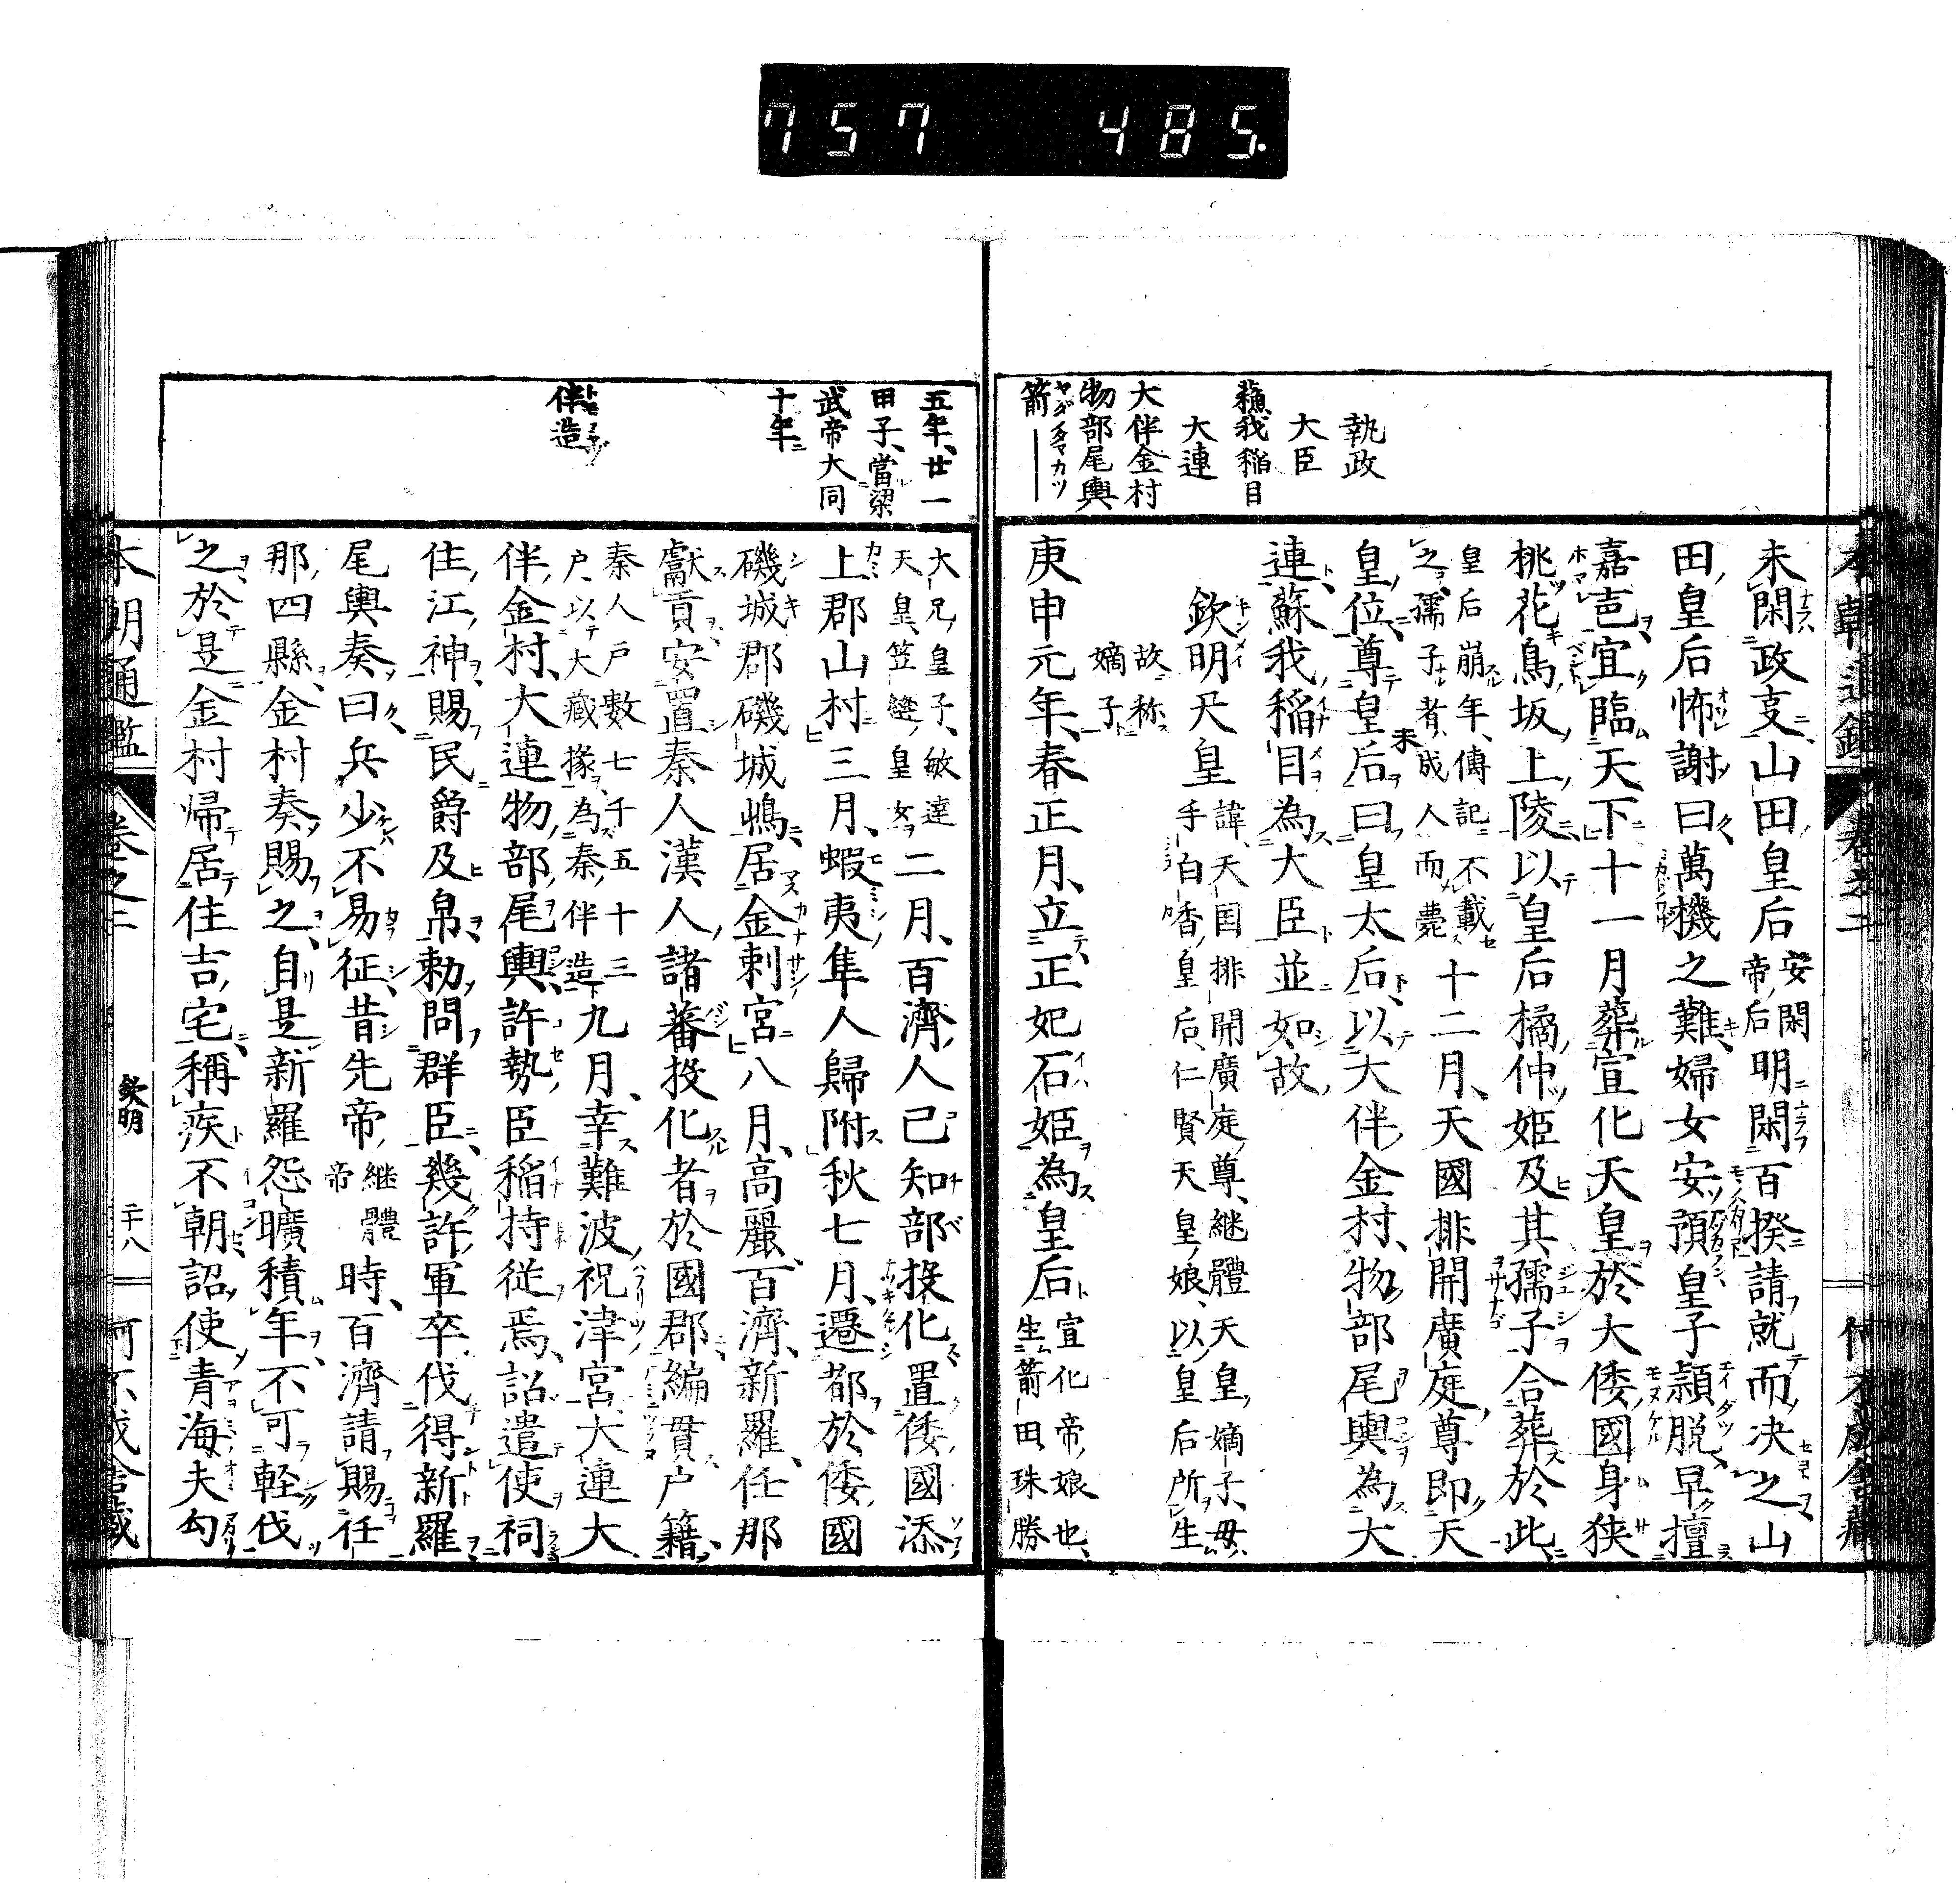 757 485.
執政
大臣
蘓我稲目
大連
大伴金村
物部尾輿
箭
未閑政叓山田皇后
安閑
帝后
明閑百揆請就而决之山
田皇后怖謝曰萬機之難婦女安預皇子頴脱早擅
嘉㐂宜臨天下十一月葬宣化天皇於大倭國身狭
桃花鳥坂上陵以皇后橘仲姫及其孺子合葬於此
皇后崩年傳記不載
之孺子者未成人而薨
十二月天國排開廣庭尊即天
皇位尊皇后曰皇太后以大伴金村物部尾輿為大
連蘇我稲目為大臣並如故
欽明天皇
諱天国排開廣庭尊継體天皇嫡子母
手白香皇后仁賢天皇娘以皇后所生
故称
嫡子
庚申元年春正月立正妃石姫為皇后
宣化帝娘也
生箭田珠勝
五年廿一
甲子當梁
武帝大同
十年
伴造
大兄皇子敏達
天皇笠縫皇女
二月百濟人已知部投化置倭國添
上郡山村三月蝦夷隼人歸附秋七月遷都於倭國
磯城郡磯城嶋居金刺宮八月高麗百濟新羅任那
獻貢安置秦人漢人諸蕃投化者於國郡編貫户籍
秦人户數七千五十三
户以大藏掾為秦伴造
九月幸難波祝津宮大連大
伴金村大連物部尾輿許勢臣稲持従焉詔遣使祠
住江神賜民爵及帛勅問群臣幾許軍卒伐得新羅
尾輿奏曰兵少不易征昔先帝
継體
帝
時百濟請賜任
那四縣金村奏賜之自是新羅怨曠積年不可軽伐
之於是金村帰居住吉宅稱疾不朝詔使青海夫勾
本朝通鑑
卷之二
欽明
二十八